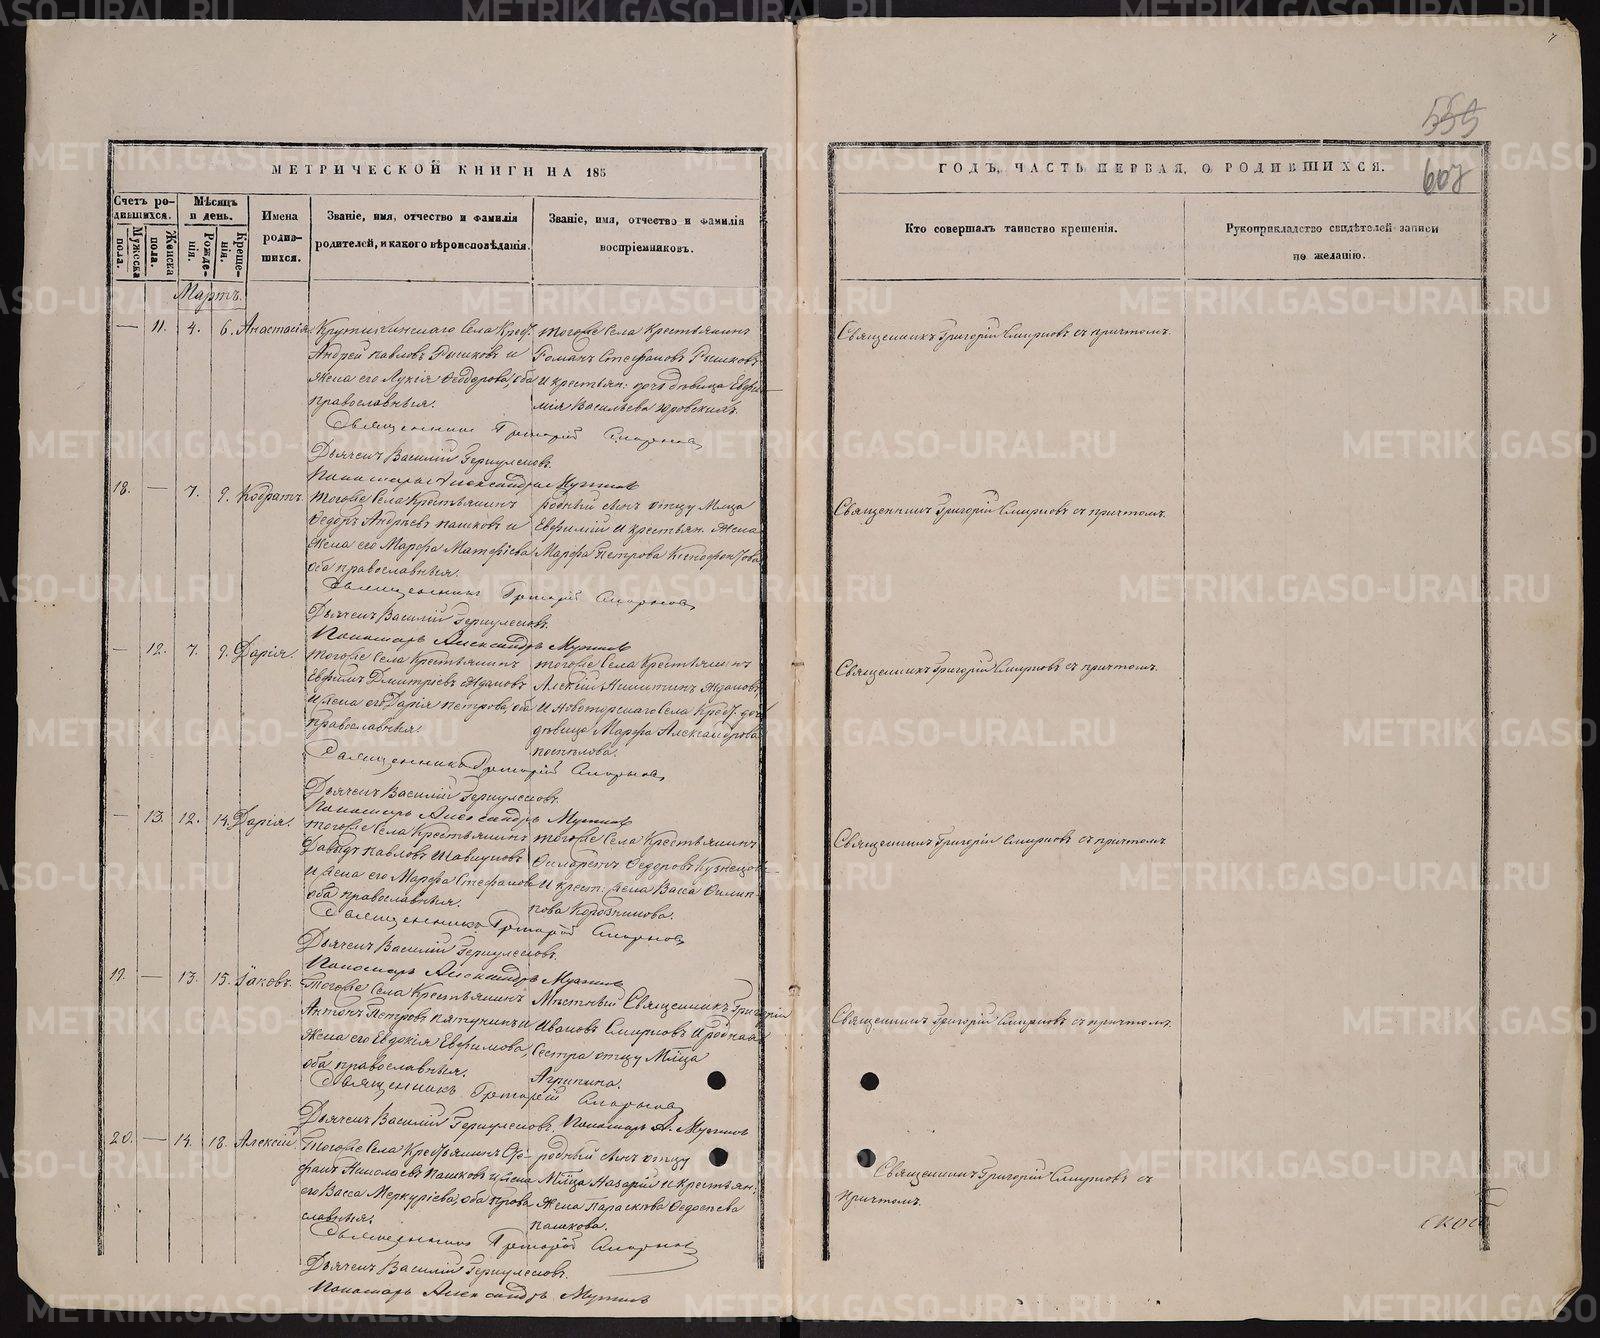 555
607
МЕТРИЧЕСКОЙ КНИГИ НА 185
ГОДЪ, ЧАСТЬ ПЕРВАЯ, О РОДИВШИХСЯ.
Счетъ ро-
дившихся.
Мужеска
пола.
Женска
пола.
Мѣсяцъ
и день.
Рожде-
нія.
Креще-
нія.
Имена
родив-
шихся.
Званіе, имя, отчество и фамилія
родителей, и какого вѣроисповѣданія.
Званіе, имя, отчество и фамилія
воспріемниковъ.
Кто совершалъ таинство крещенія.
Рукоприкладство свидѣтелей записи
по желанію.
Мартъ.
— 11. 4. 6. Анастасія
села Крест.
Андрей Павловъ и
жена его Лукія Ѳеодорова, оба
православныя.
тогоже села крестьянинъ
Романъ Стефановъ
и крестьян: дочь дѣвица Евфи-
мія Васильева
Священникъ Григорій Смирновъ съ причтомъ.
Священникъ Григорій Смирновъ
Дьячекъ Василій
Пономарь Александръ
18. — 7. 9. Кодратъ.
тогоже села крестьянинъ
Ѳедоръ Андреевъ Пашковъ и
жена его Марфа Матфіева
оба православныя.
родный сынъ отцу Мл͠ца
Евфимій и крестьян. жена
Марфа Петрова
Священникъ Григорій Смирновъ съ причтомъ.
Священникъ Григорій Смирновъ
Дьячекъ Василій
Пономарь Александръ
— 12. 7. 9. Дарія.
тогоже села крестьянинъ
Евфимъ Дмитріевъ Ждановъ
и жена его Дарія Петрова, оба
православныя.
тогоже села крестьянинъ
Алексій Никитинъ Ждановъ
и Новоторскаго села Крест. дочь
дѣвица Марфа Александрова
Поспѣлова.
Священникъ Григорій Смирновъ съ причтомъ.
Священникъ Григорій Смирновъ
Дьячекъ Василій
Пономарь Александръ
— 13. 12. 14. Дарія.
тогоже села крестьянинъ
Давыдъ Павловъ
и жена его Марфа Стефанова
оба православныя.
тогоже села крестьянинъ
Филаретъ Ѳедоровъ Кузнецовъ
и крест. жена Васса Филип-
пова
Священникъ Григорій Смирновъ съ причтомъ
Священникъ Григорій Смирновъ
Дьячекъ Василій
Пономарь Александръ
19. — 13. 15. Іаковъ.
тогоже села крестьянинъ
Антонъ Петровъ Пятунинъ и
жена его Евдокія Евфимова,
оба православныя.
Мѣстный Священникъ Григорій
Ивановъ Смирновъ и родная
сестра отцу Мл͠ца
Агрипина.
Священникъ Григорій Смирновъ съ причтомъ.
Священникъ Григорій Смирновъ
Дьячекъ Василій
Пономарь А.
20. — 14. 18. Алексій.
тогоже села Крестьянинъ Сте-
фанъ Николаевъ Пашковъ и жена
его Васса Меркуріева, оба право-
славныя.
родный сынъ отцу
Мл͠ца Назарій и крестьян.
жена Параскѣва Ѳедосѣева
Пашкова.
Священникъ Григорій Смирновъ съ
причтомъ.
Священникъ Григорій Смирновъ
Дьячекъ Василій
Пономарь Александръ
METRIKI.GASO-URAL.RU